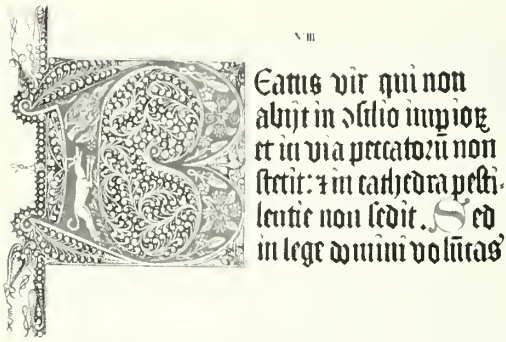 VIII
Beatus vir qui non
abijt in ↄsilio impioꝝ
et in via peccatorū non
stetit: ⁊ in cathedra pesti-
lentie non sedit. Sed
in lege domini volūtas